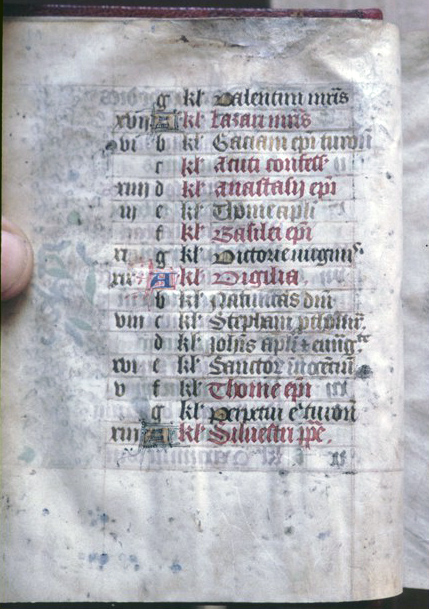 g kl' Valentini mris
xvii A kl' Lazari mris
vi b kl' Gaciani epi turon
c kl' Acuti confess
xiiii d kl' Anastasij epi
iii e kl' Thome apli
f kl' Basilei epi
xi g kl' Victorie virginis
xix A kl' Vigilia.
b kl' Natiuitas dni
viii c kl' Stephani
d kl' Johis apli et euug
xvi e kl' Sanctor innocentiu
v f kl' Thome epi
g kl' Perpetui e turon
xiii A kl' Siluestri ppe.